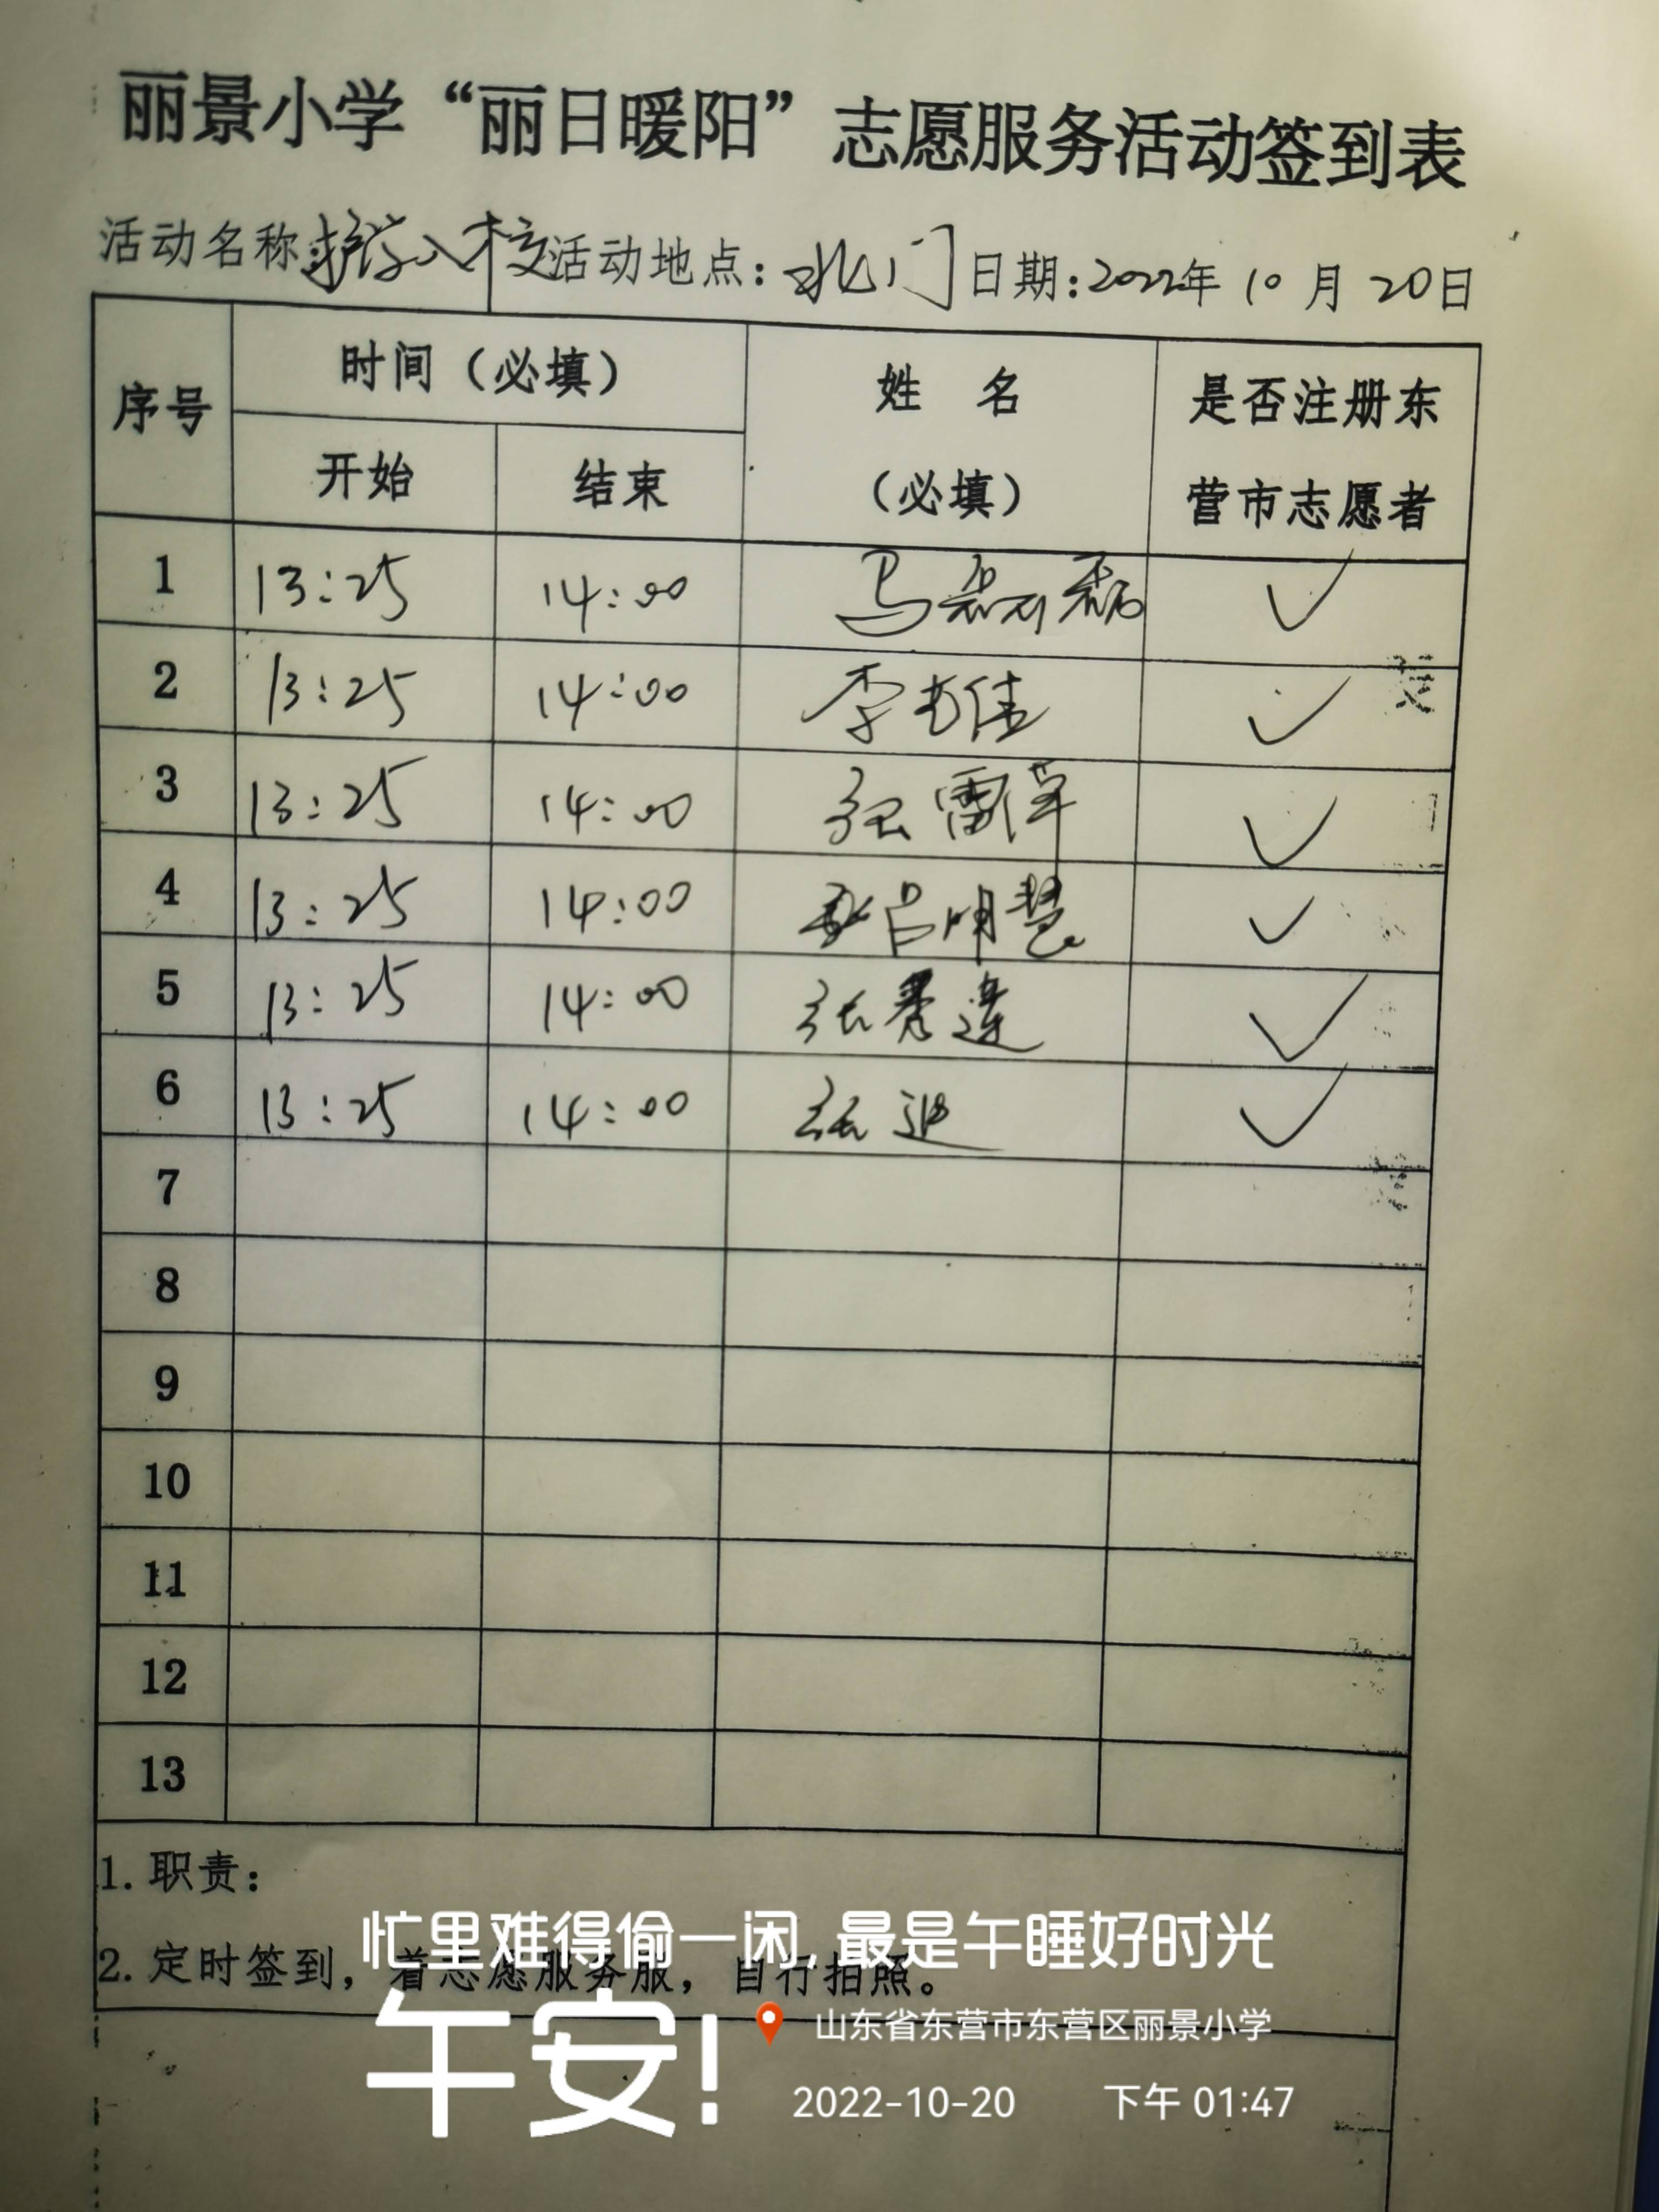 丽景小学“丽日暖阳”志愿服务活动签到表
活动名称:护学入校 活动地点:北门 日期:2022年10月20日
序号 时间(必填) 姓 名 (必填) 是否注册东营市志愿者
开始 结束
1 13:25 14:00 马 ✓
2 13:25 14:00 李 佳 ✓
3 13:25 14:00 张雷 ✓
4 13:25 14:00 吕明慧 ✓
5 13:25 14:00 张秀莲 ✓
6 13:25 14:00 张迪 ✓
7
8
9
10
11
12
13
1.职责:
2.定时签到,着志愿服务服,自行拍照。
忙里难得偷一闲,最是午睡好时光
午安!
山东省东营市东营区丽景小学
2022-10-20 下午 01:47